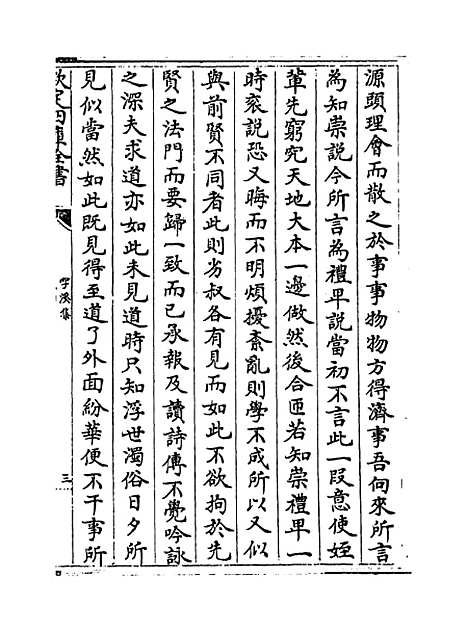 源頭理會而散之於事事物物方得濟事吾向來所言
為知崇說今所言為禮卑說當初不言此一段意使姪
輩先窮究天地大本一邊做然後合匝若知崇禮卑一
時衮說恐又晦而不明煩擾紊亂則學不成所以又似
與前賢不同者此則劣叔各有見而如此不欲拘於先
賢之法門而要歸一致而已承報及讀詩傳不覺吟詠
之深夫求道亦如此未見道時只知浮世濁俗日夕所
見似當然如此既見得至道了外面紛華便不干事所
欽定四庫全書
字溪集
三